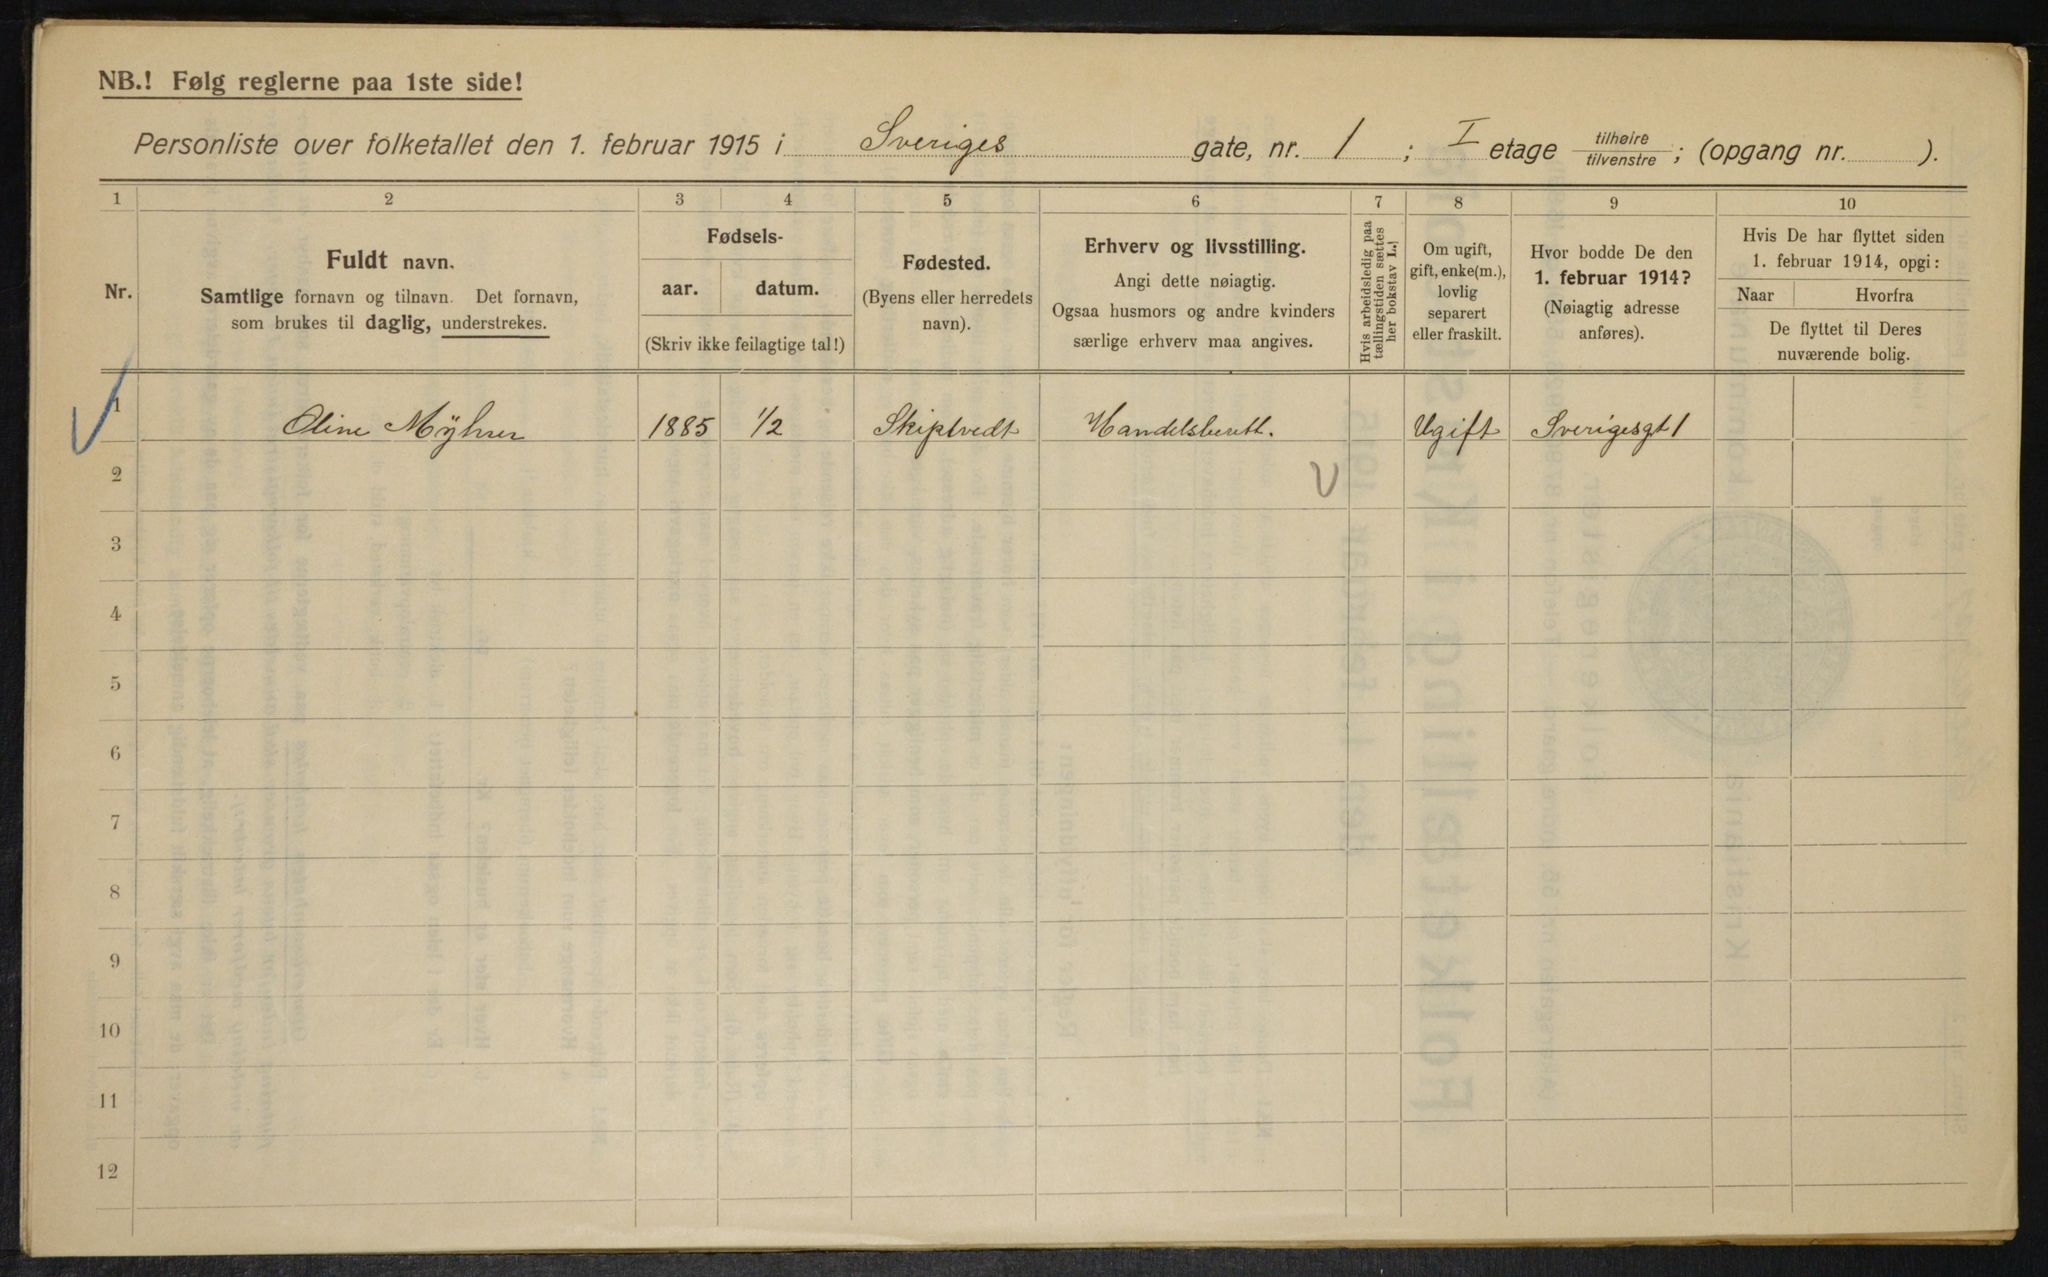 NB.! Følg reglerne paa 1ste side!
Personliste over folketallet den 1. februar 1915 i Sveriges gate, nr. 1 ; I etage tilhøire tilvenstre ; (opgang nr. ).
1 2 3 4 5 6 7 8 9 10
Nr.
Fuldt navn.
Samtlige fornavn og tilnavn. Det fornavn,
som brukes til daglig, understrekes.
Fødsels-
aar. datum.
(Skriv ikke feilagtige tal!)
Fødested.
(Byens eller herredets
navn).
Erhverv og livsstilling.
Angi dette nøiagtig.
Ogsaa husmors og andre kvinders
særlige erhverv maa angives.
Hvis arbeidsledig paa
tællingstiden sættes
her bokstav L.
Om ugift,
gift, enke(m.),
lovlig
separert
eller fraskilt.
Hvor bodde De den
1. februar 1914?
(Nøiagtig adresse
anføres).
Hvis De har flyttet siden
1. februar 1914, opgi:
Naar Hvorfra
De flyttet til Deres
nuværende bolig.
1 Oline Mÿhrer 1885 1/2 Skiptvedt Handelsbrett. Ugift Sverigesgt 1
2
3
4
5
6
7
8
9
10
11
12